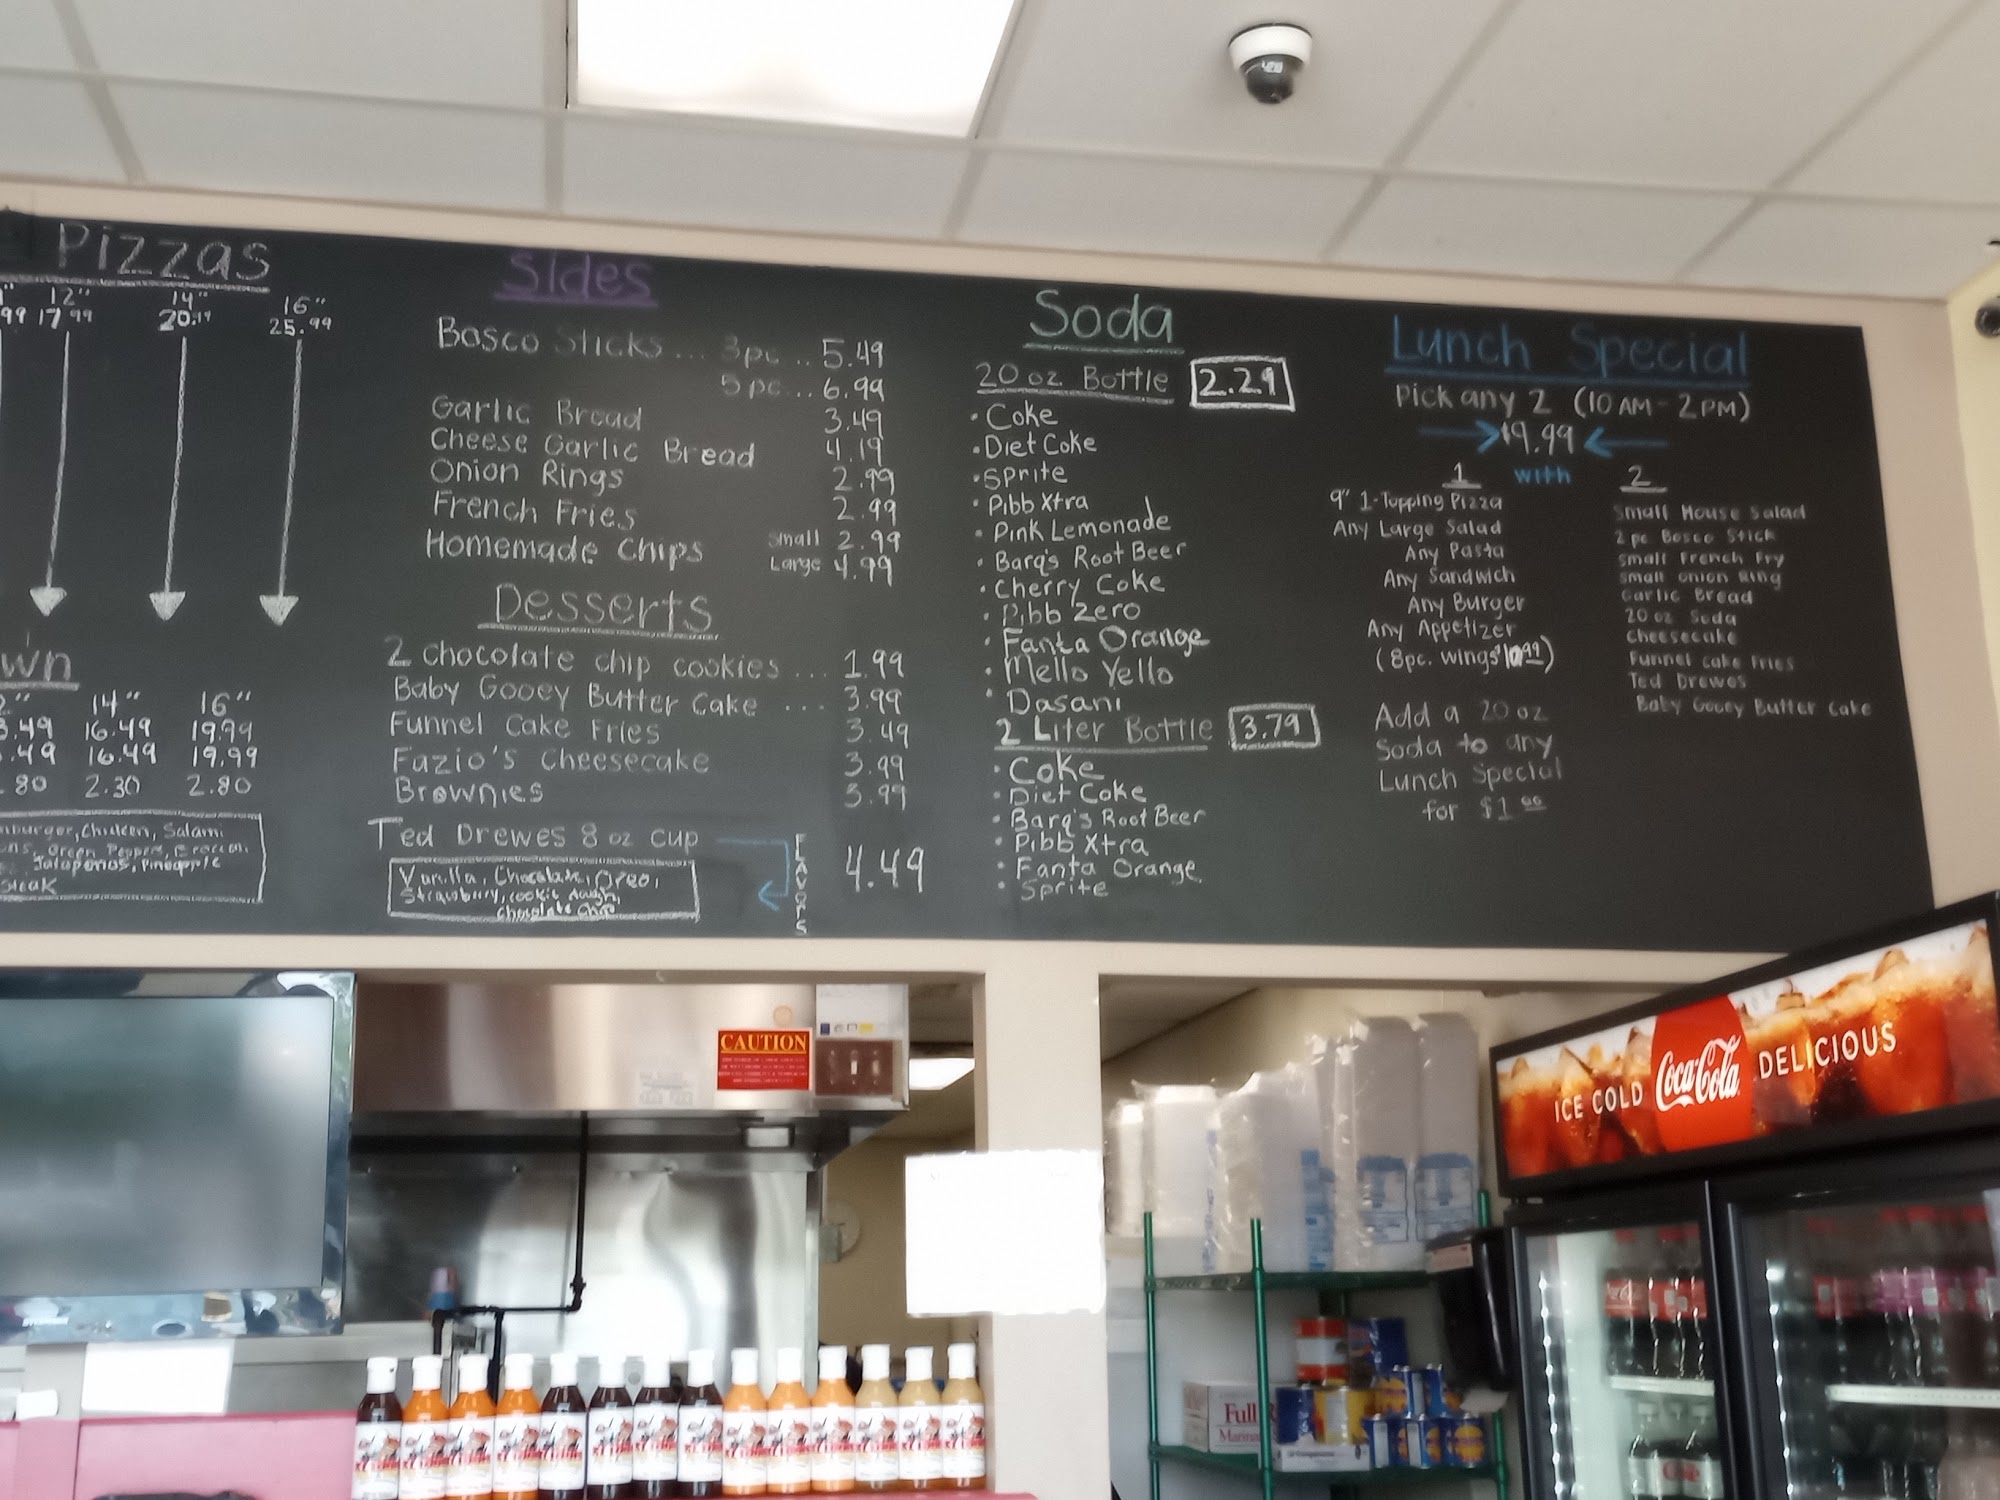 Pizzas
12" 14" 16"
99 17.99 20.19 25.99
wn
14" 16"
.49 16.49 19.99
.49 16.49 19.99
.80 2.30 2.80
burger, Chicken, Salami
ons, Green Peppers, Broccoli
Jalapenos, Pineapple
Steak
Sides
Bosco Sticks ... 3pc... 5.49
5pc... 6.99
Garlic Bread 3.49
Cheese Garlic Bread 4.19
Onion Rings 2.99
French Fries 2.99
Homemade Chips Small 2.99
Large 4.99
Desserts
2 chocolate chip cookies ... 1.99
Baby Gooey Butter Cake ... 3.99
Funnel Cake Fries 3.49
Fazio's Cheesecake 3.99
Brownies 3.99
Ted Drewes 8 oz cup 4.49
FLAVORS
Vanilla, Chocolate, Oreo,
Strawberry, cookie dough,
chocolate chip
Soda
20 oz Bottle 2.29
• Coke
• Diet Coke
• Sprite
• Pibb Xtra
• Pink Lemonade
• Barq's Root Beer
• Cherry Coke
• Pibb Zero
• Fanta Orange
• Mello Yello
• Dasani
2 Liter Bottle 3.79
• Coke
• Diet Coke
• Barq's Root Beer
• Pibb Xtra
• Fanta Orange
• Sprite
Lunch Special
Pick any 2 (10 AM - 2 PM)
$9.99
with
1
9" 1-Topping Pizza
Any Large Salad
Any Pasta
Any Sandwich
Any Burger
Any Appetizer
(8pc. wings $10.99)
Add a 20 oz
Soda to any
Lunch Special
for $1.00
2
Small House Salad
2 pc Bosco Stick
Small French Fry
Small Onion Ring
Garlic Bread
20 oz Soda
Cheesecake
Funnel Cake Fries
Ted Drewes
Baby Gooey Butter Cake
CAUTION
ICE COLD Coca-Cola DELICIOUS
Full